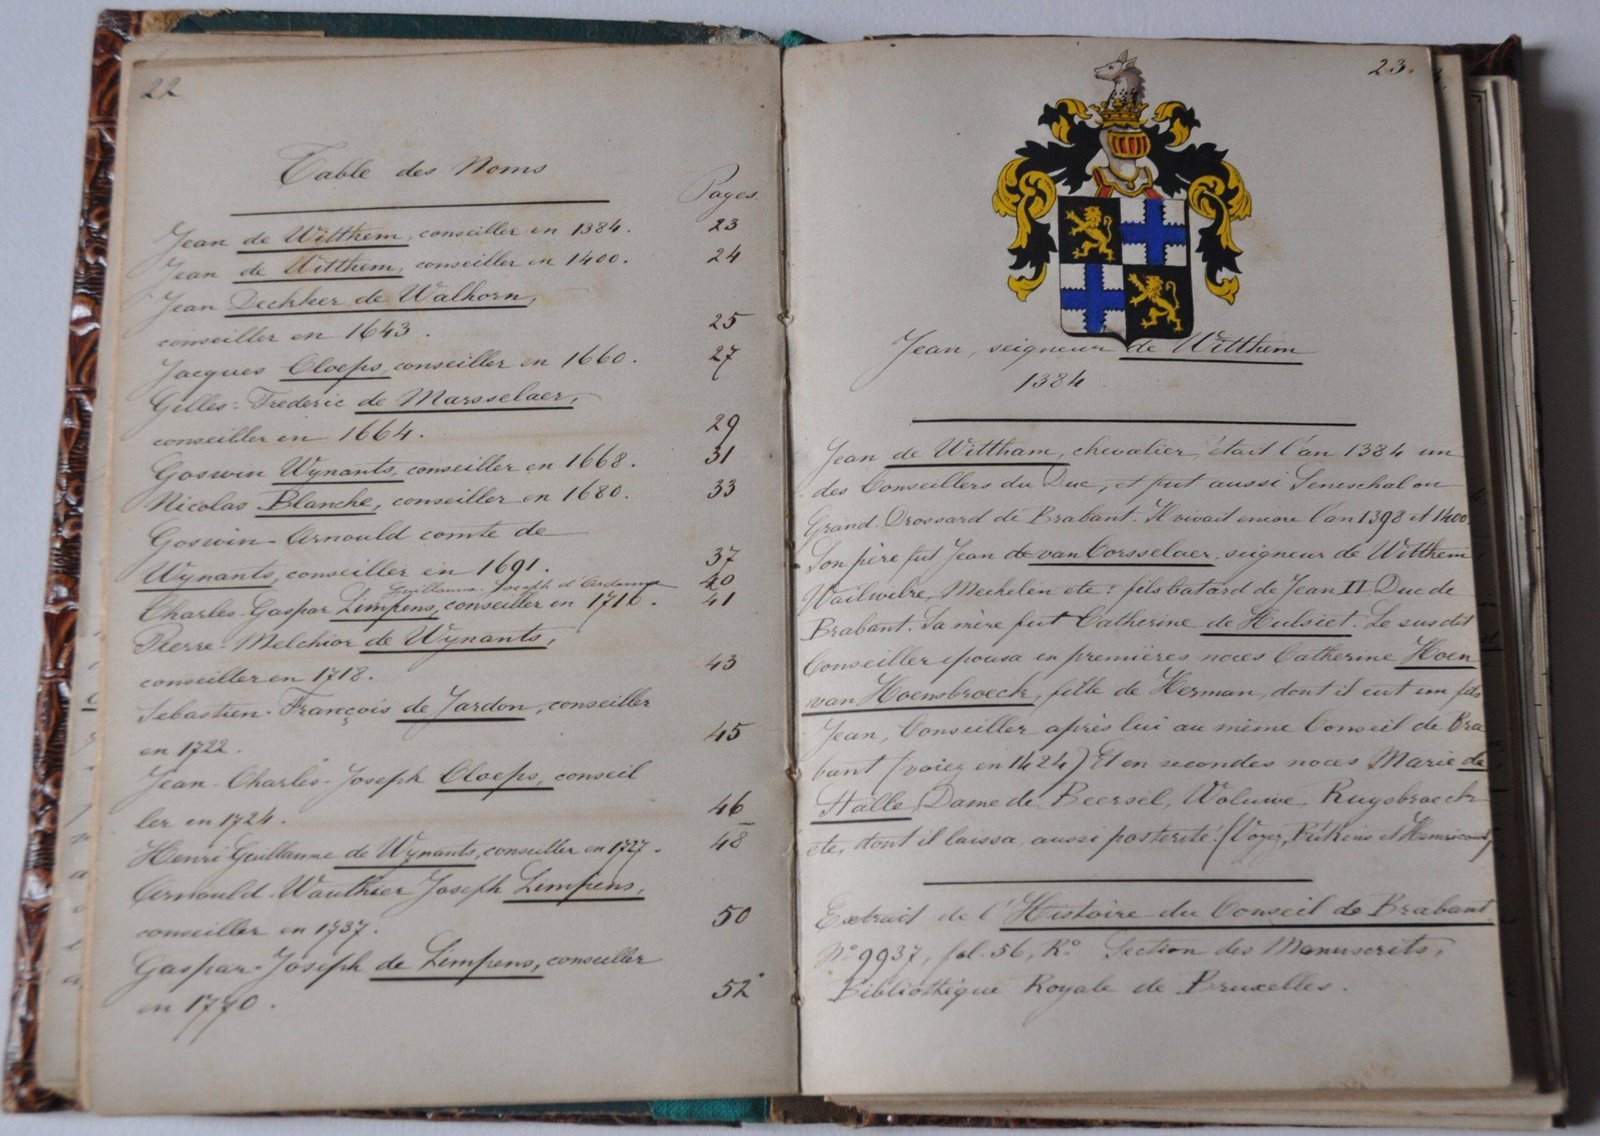 22
Table des Noms
Pages
Jean de Witthem, conseiller en 1384. 23
Jean de Witthem, conseiller en 1400. 24
Jean Deckker de Walhorn,
conseiller en 1643. 25
Jacques Cloeps, conseiller en 1660. 27
Gilles-Frederic de Marsselaer,
conseiller en 1664. 29
Goswin Wynants, conseiller en 1668. 31
Nicolas Blanche, conseiller en 1680. 33
Goswin-Arnould comte de
Wynants, conseiller en 1691. 37
Guillaume-Joseph d'Ardenne 40
Charles-Gaspar Limpens, conseiller en 1716. 41
Pierre-Melchior de Wynants,
conseiller en 1718. 43
Sebastien-François de Jardon, conseiller
en 1722. 45
Jean-Charles-Joseph Cloeps, conseil
ler en 1724. 46
Henri Guillaume de Wynants, conseiller en 1727. 48
Arnould-Wauthier-Joseph Limpens,
conseiller en 1737. 50
Gaspar-Joseph de Limpens, conseiller
en 1770. 52
23.
Jean, seigneur de Witthem
1384.
Jean de Wittham, chevalier, était l'an 1384 un
des Conseillers du Duc, et fut aussi Seneschal ou
Grand Drossard de Brabant. Il vivait encore l'an 1398 et 1400.
Son père fut Jean de van Corsselaer, seigneur de Witthem
Wailwilre, Mechelen etc: fils batard de Jean II Duc de
Brabant. Sa mère fut Catherine de Hulsiet. Le susdit
Conseiller epousa en premières noces Catherine Hoen
van Hoensbroeck, fille de Herman, dont il eut un fils
Jean, Conseiller après lui au même Conseil de Bra
bant (voiez en 1424) Et en secondes noces Marie de
Stalle, Dame de Beersel, Woluwe, Ruysbroeck
etc, dont il laissa aussi posterité. (Voyez, Butkens et Hemricourt)
Extrait de l'Histoire du Conseil de Brabant
N° 9937, fol. 56, R°. Section des Manuscrits,
Bibliothèque Royale de Bruxelles.